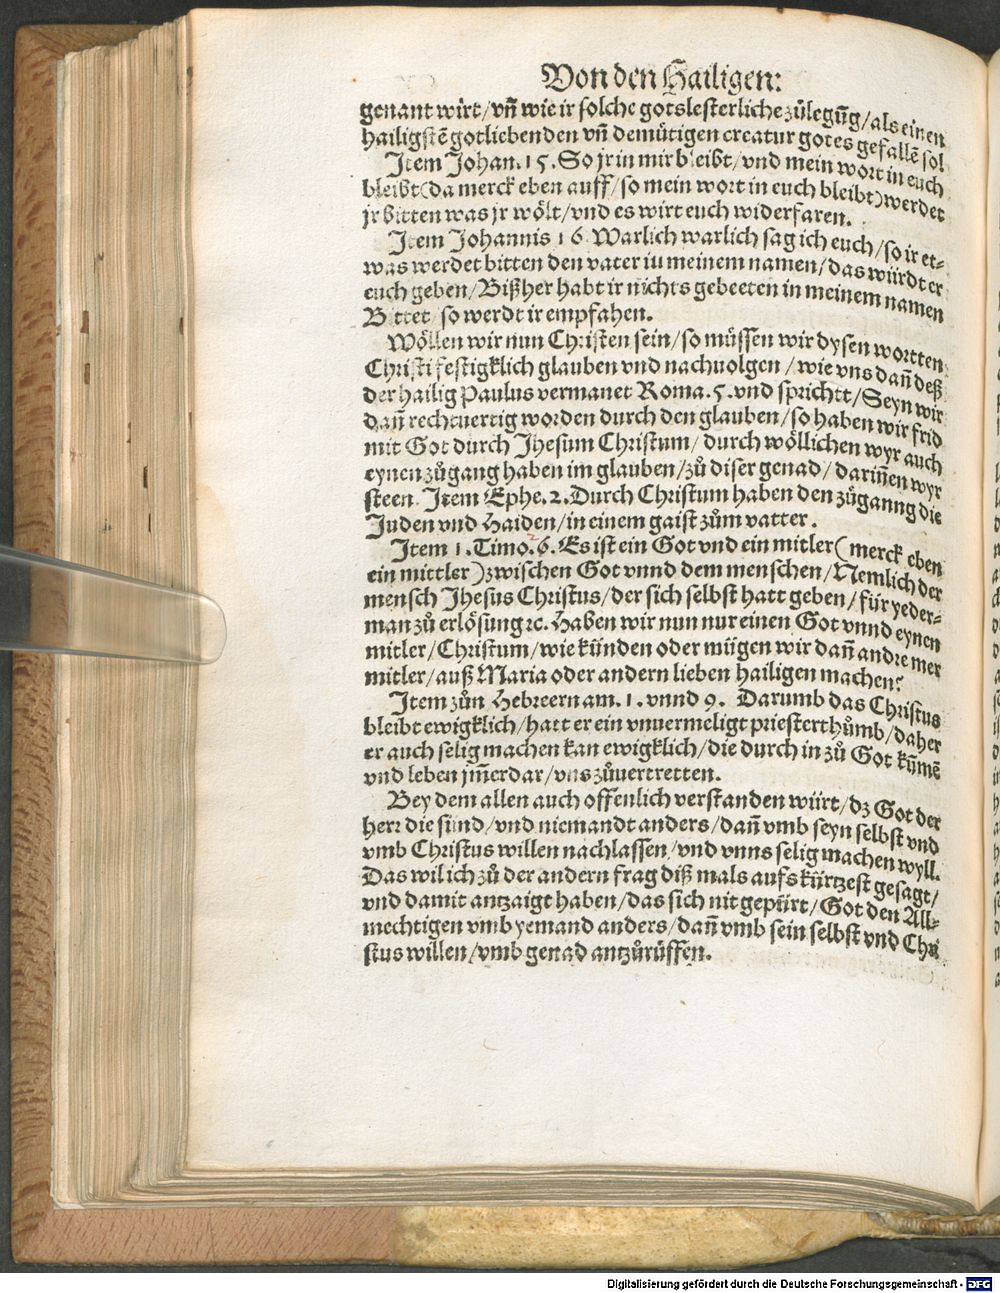 Von den Hailigen:
genant wirt/vñ wie ir solche gotslesterliche zůlegūg/als einen
hailigstē gotliebenden vñ demütigen creatur gotes gefallē sol
Item Johan. 15. So jr in mir bleibt/vnd mein wort in euch
bleibt(da merck eben auff/so mein wort in euch bleibt)werdet
jr bitten was jr wölt/vnd es wirt euch widerfaren.
Item Johannis 16 Warlich warlich sag ich euch/so ir et⸗
was werdet bitten den vater iu meinem namen/das würdt er
euch geben/Bißher habt ir nichts gebeeten in meinem namen
Bittet/so werdt ir empfahen.
Wöllen wir nun Christen sein/so müssen wir dysen wortten
Christi festigklich glauben vnd nachuolgen/wie vns dañ deß
der hailig Paulus vermanet Roma. 5. vnd sprichtt/Seyn wir
dañ rechtuertig worden durch den glauben/so haben wir frid
mit Got durch Jhesum Christum/durch wöllichen wyr auch
eynen zůgang haben im glauben/zů diser genad/dariñen wyr
steen Item Ephe. 2. Durch Christum haben den zůganng die
Juden vnd Haiden/in einem gaist zům vatter.
Item 1. Timo. 6. Es ist ein Got vnd ein mitler(merck eben
ein mittler)zwischen Got vnnd dem menschen/Nemlich der
mensch Jhesus Christus/der sich selbst hatt geben/für yeder⸗
man zů erlösung ⁊c. Haben wir nun nur einen Got vnnd eynen
mitler/Christum/wie künden oder mügen wir dañ andre mer
mitler/auß Maria oder andern lieben hailigen machen?
Item zůn Hebreern am. 1. vnnd 9. Darumb das Christus
bleibt ewigklich/hatt er ein vnuermeligt priesterthůmb/daher
er auch selig machen kan ewigklich/die durch in zů Got kūmē
vnd leben jm̄erdar/vns zůuertretten.
Bey dem allen auch offenlich verstanden würt/dz Got der
herr die sünd/vnd niemandt anders/dañ vmb seyn selbst vnd
vmb Christus willen nachlassen/vnd vnns selig machen wyll.
Das wil ich zů der andern frag diß mals aufs kürtzest gesagt/
vnd damit antzaigt haben/das sich nit gepürt/Got den All⸗
mechtigen vmb yemand anders/dañ vmb sein selbst vnd Chri
stus willen/vmb genad antzůrüffen.
Digitalisierung gefördert durch die Deutsche Forschungsgemeinschaft - DFG